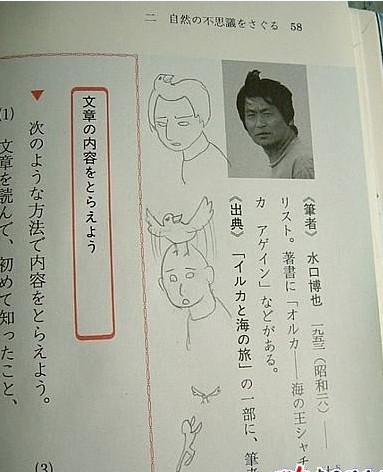 二 自然の不思議をさぐる 58
《筆者》 水口博也 一九五三(昭和二八)——
リスト。著書に「オルカ——海の王シャチ
カ アゲイン」などがある。
《出典》「イルカと海の旅」の一部に、筆者
文章の内容をとらえよう
▼ 次のような方法で内容をとらえよう。
(1) 文章を読んで、初めて知ったこと、
(3)